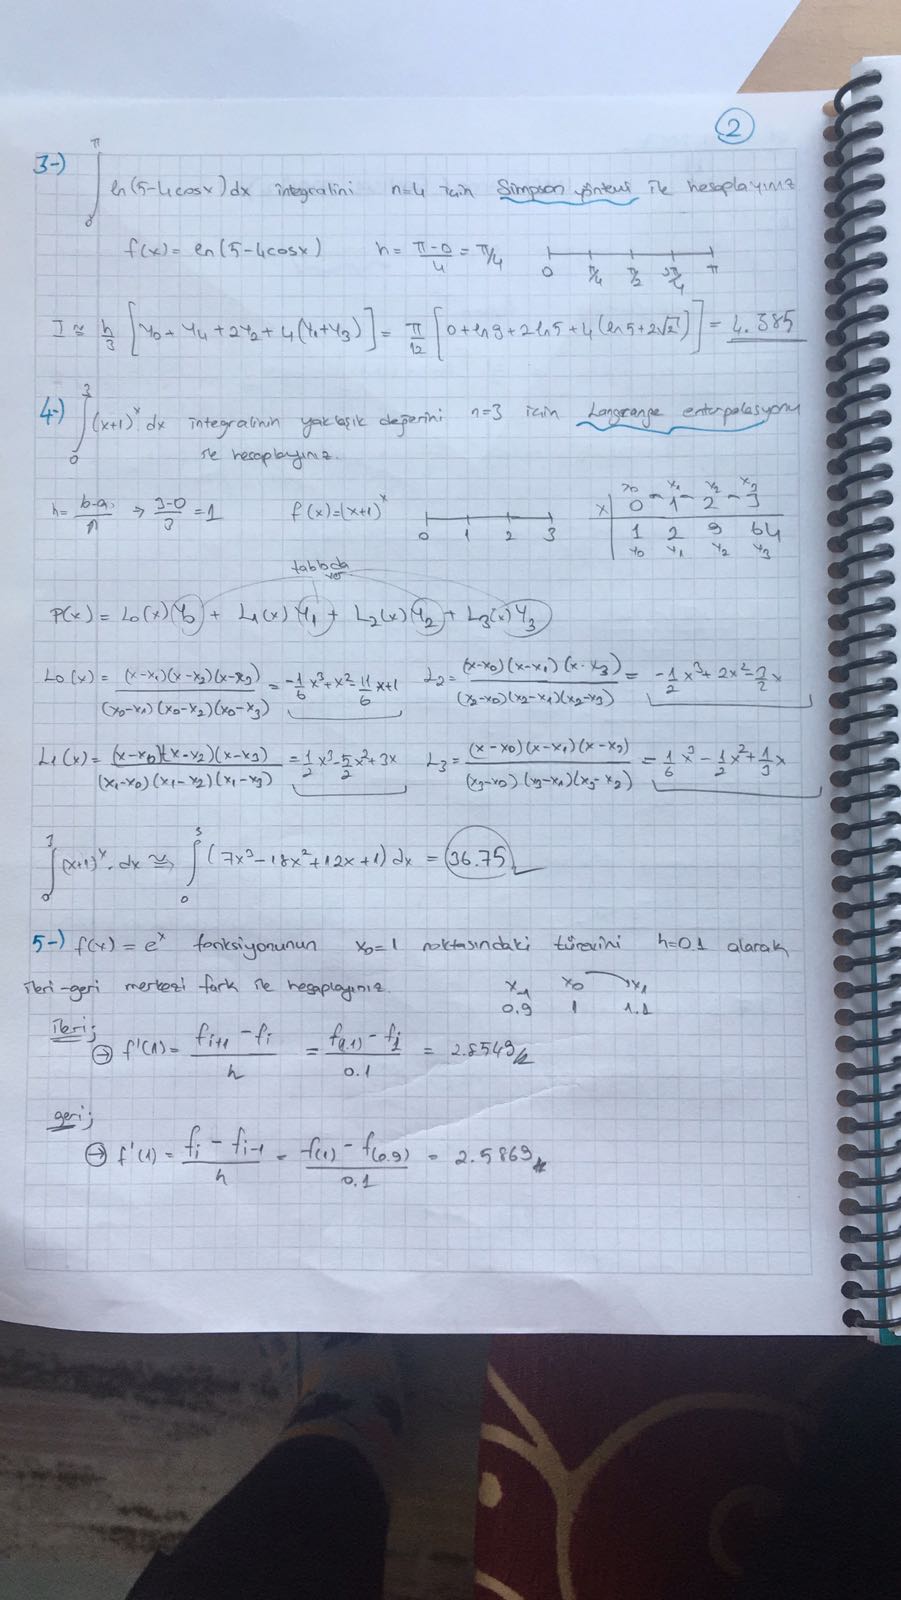 2
3-) ∫₀^π ln(5-4cosx)dx integralini n=4 için Simpson yöntemi ile hesaplayınız
f(x)= ln(5-4cosx) h= π-0/4 = π/4 0 π/4 π/2 3π/4 π
I ≅ h/3 [y0+y4+2y2+4(y1+y3)] = π/12 [0+ln9+2ln5+4(ln5+2√2)] = 4.385
4-) ∫₀³ (x+1)^x dx integralinin yaklaşık değerini n=3 için Langrange enterpolasyonu
ile hesaplayınız.
h= b-a/n → 3-0/3 = 1 f(x)=(x+1)^x 0 1 2 3
x0 x1 x2 x3
x 0 - 1 - 2 - 3
1 2 9 64
y0 y1 y2 y3
tabloda
var
P(x) = L0(x)y0 + L1(x)y1 + L2(x)y2 + L3(x)y3
L0(x) = (x-x1)(x-x2)(x-x3)/(x0-x1)(x0-x2)(x0-x3) = -1/6x³+x²-11/6x+1 L2= (x-x0)(x-x1)(x-x3)/(x2-x0)(x2-x1)(x2-x3) = -1/2x³+2x²-3/2x
L1(x) = (x-x0)(x-x2)(x-x3)/(x1-x0)(x1-x2)(x1-x3) = 1/2x³-5/2x²+3x L3= (x-x0)(x-x1)(x-x2)/(x3-x0)(x3-x1)(x3-x2) = 1/6x³-1/2x²+1/3x
∫₀³ (x+1)^x · dx ≅ ∫₀³ (7x³-18x²+12x+1)dx = 36.75
5-) f(x) = e^x fonksiyonunun x0=1 noktasındaki türevini h=0.1 alarak
ileri-geri merkezi fark ile hesaplayınız.
x-1 x0 x1
0.9 1 1.1
ileri;
→ f'(1) = fi+1 - fi/h = f(1.1) - f1/0.1 = 2.8549
geri;
→ f'(1) = fi - fi-1/h = f(1) - f(0.9)/0.1 = 2.5869